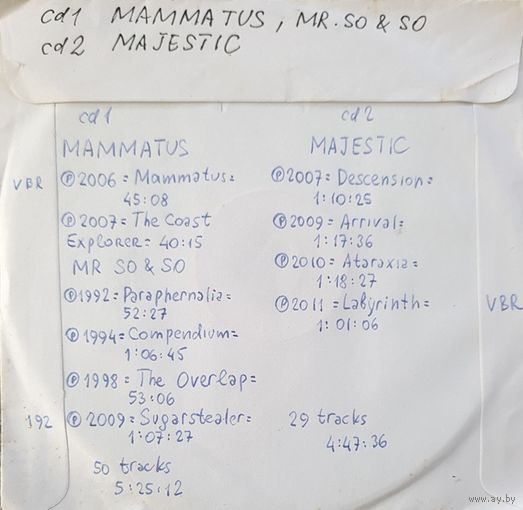 cd1 MAMMATUS, MR. SO & SO
cd2 MAJESTIC
cd1
MAMMATUS
VBR ℗2006 = Mammatus =
45:08
℗2007 = The Coast
Explorer = 40:15
MR SO & SO
℗1992 = Paraphernalia =
52:27
℗1994 = Compendium =
1:06:45
℗1998 = The Overlap =
53:06
192 ℗2009 = Sugarstealer =
1:07:27
50 tracks
5:25:12
cd2
MAJESTIC
℗2007 = Descension =
1:10:25
℗2009 = Arrival =
1:17:36
℗2010 = Ataraxia =
1:18:27
℗2011 = Labyrinth = VBR
1:01:06
29 tracks
4:47:36
www.ay.by